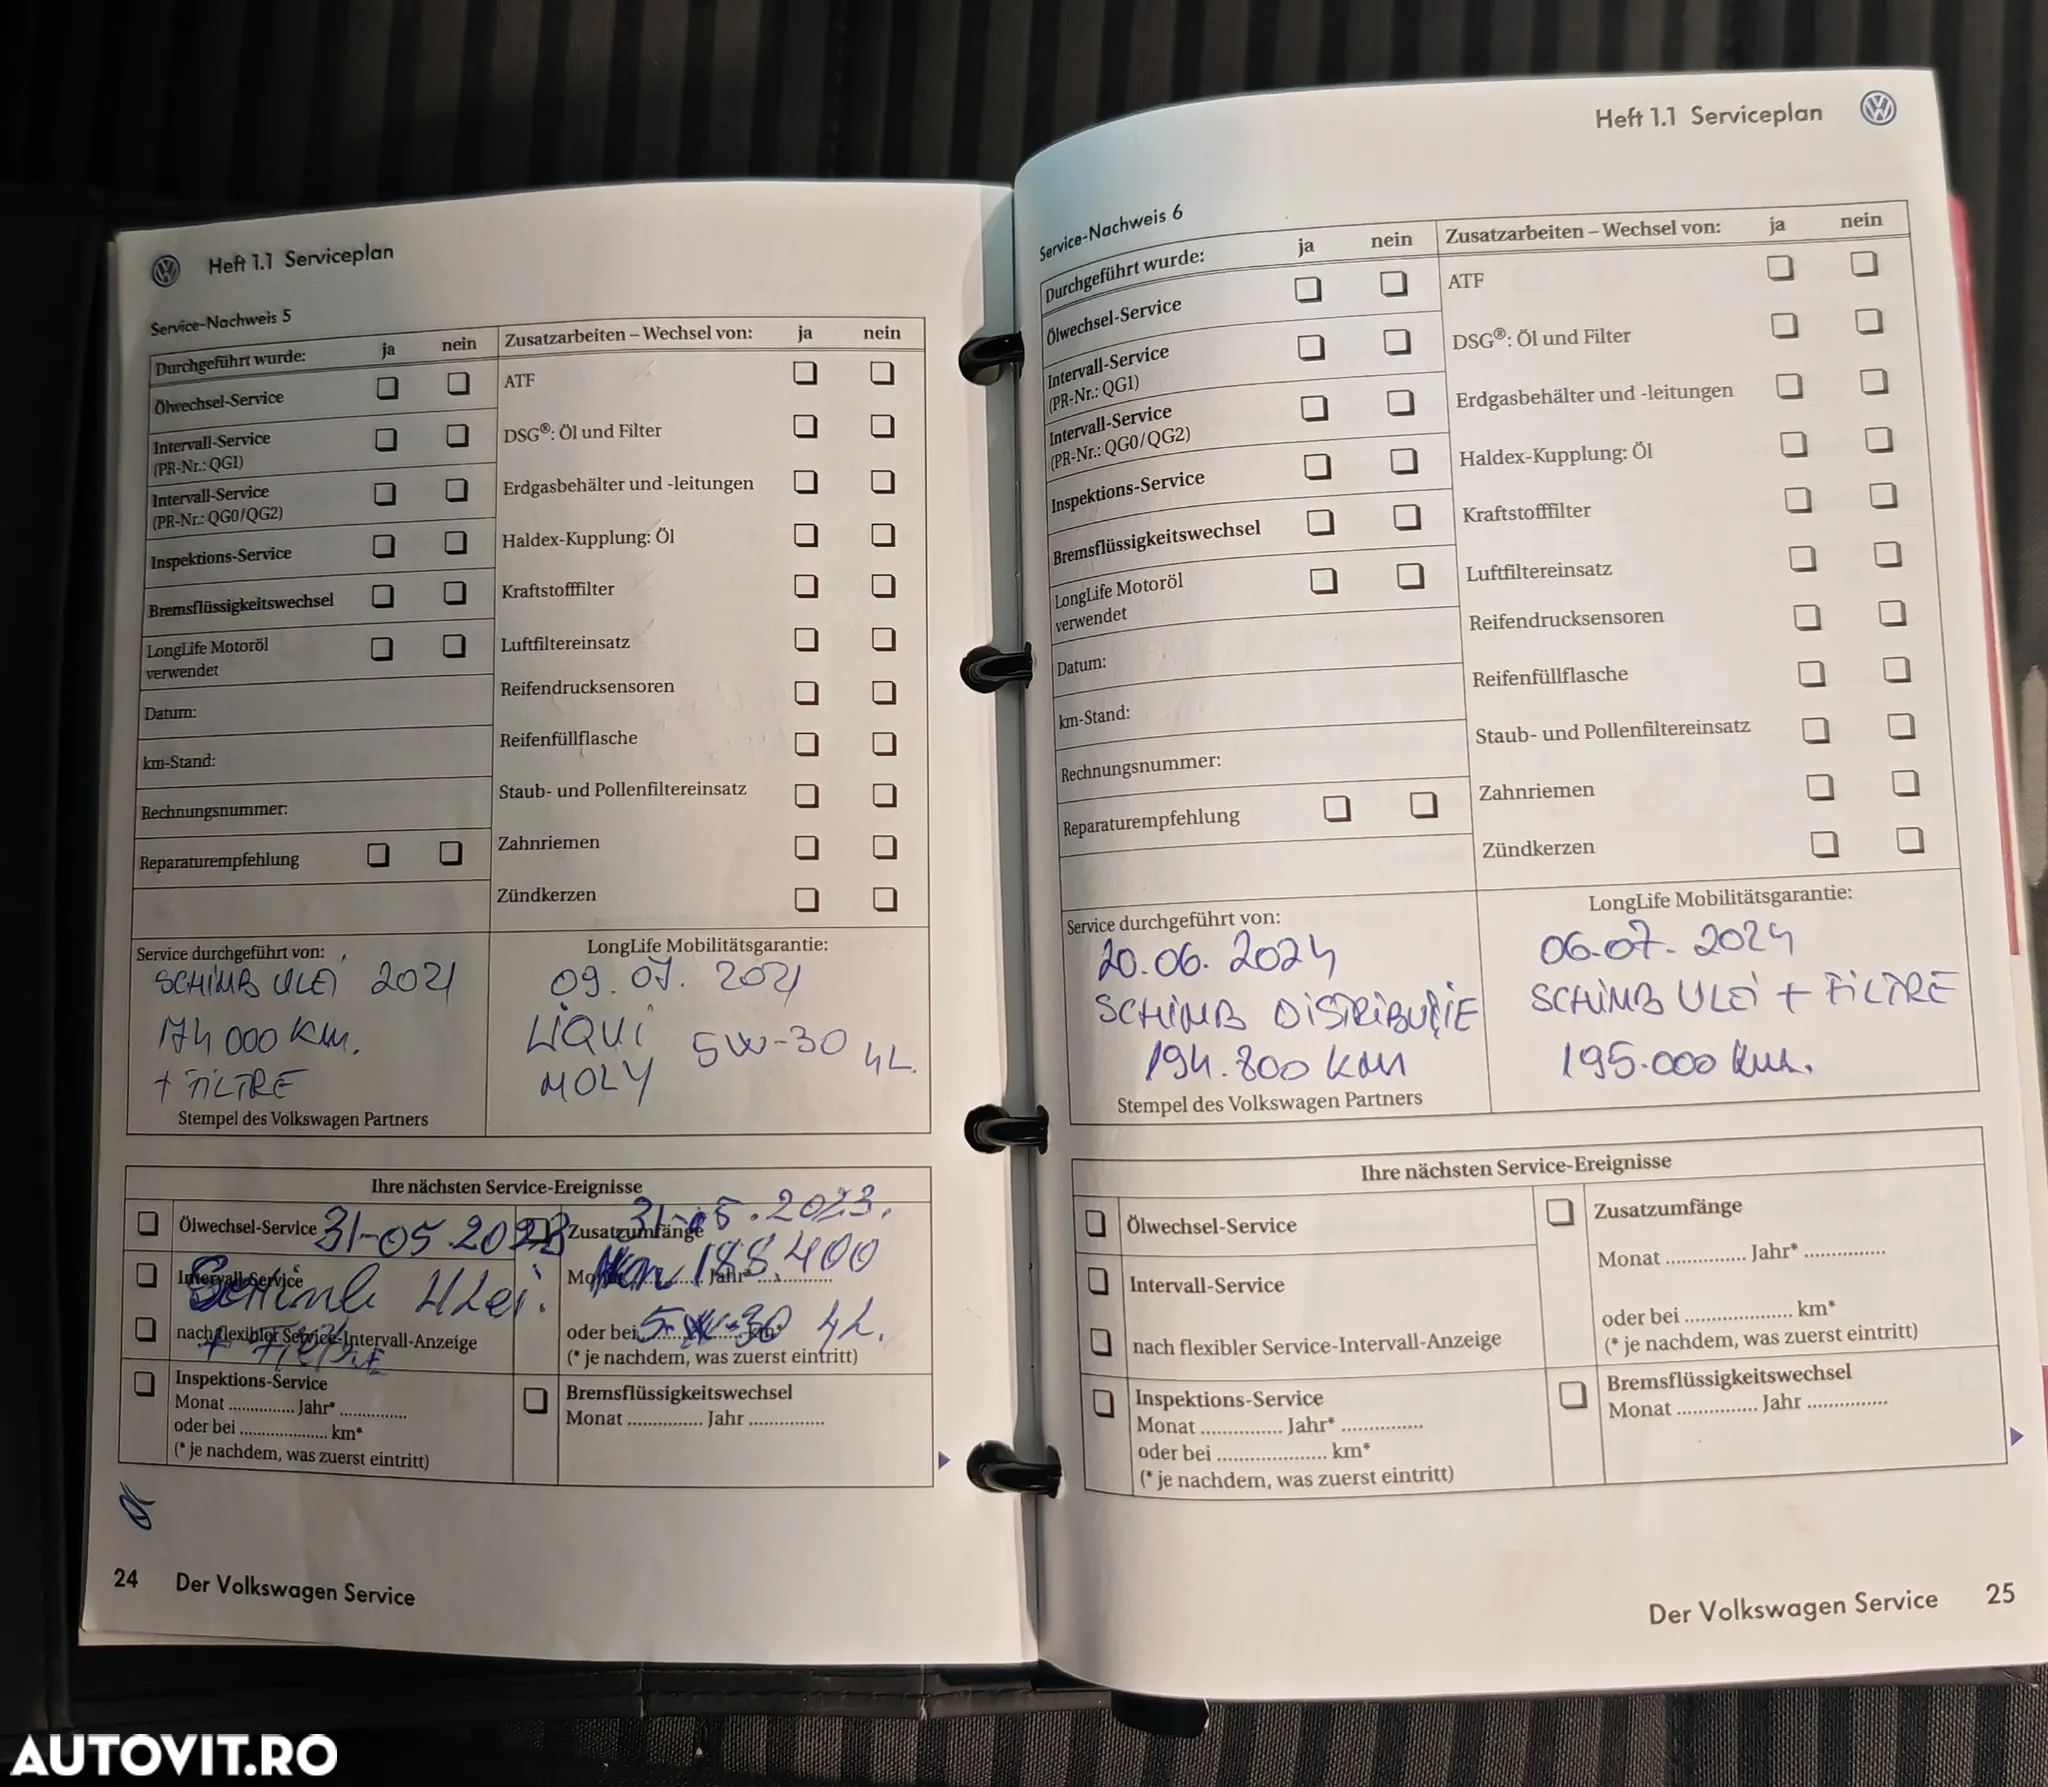 Heft 1.1 Serviceplan
Service-Nachweis 5
Durchgeführt wurde: ja nein Zusatzarbeiten – Wechsel von: ja nein
Ölwechsel-Service ATF
Intervall-Service DSG®: Öl und Filter
(PR-Nr.: QG1)
Intervall-Service Erdgasbehälter und -leitungen
(PR-Nr.: QG0/QG2)
Inspektions-Service Haldex-Kupplung: Öl
Bremsflüssigkeitswechsel Kraftstofffilter
LongLife Motoröl Luftfiltereinsatz
verwendet
Datum: Reifendrucksensoren
km-Stand: Reifenfüllflasche
Rechnungsnummer: Staub- und Pollenfiltereinsatz
Reparaturempfehlung Zahnriemen
Zündkerzen
Service durchgeführt von:
SCHIMB ULEI 2021
174 000 KM.
+ FILTRE
Stempel des Volkswagen Partners
LongLife Mobilitätsgarantie:
09.07.2021
LIQUI
MOLY 5W-30 4L.
Ihre nächsten Service-Ereignisse
Ölwechsel-Service 31-05.2023
Intervall-Service
Schimb Ulei.
nach flexibler Service-Intervall-Anzeige
+ FILTRE
Inspektions-Service
Monat .............. Jahr* ..............
oder bei .................... km*
(* je nachdem, was zuerst eintritt)
Zusatzumfänge 31-05.2023.
Monat Jahr*
Km 188400
oder bei km*
5-W-30 4L.
(* je nachdem, was zuerst eintritt)
Bremsflüssigkeitswechsel
Monat ............... Jahr ...............
24 Der Volkswagen Service
Heft 1.1 Serviceplan
Service-Nachweis 6
Durchgeführt wurde: ja nein Zusatzarbeiten – Wechsel von: ja nein
Ölwechsel-Service ATF
Intervall-Service DSG®: Öl und Filter
(PR-Nr.: QG1)
Intervall-Service Erdgasbehälter und -leitungen
(PR-Nr.: QG0/QG2)
Inspektions-Service Haldex-Kupplung: Öl
Bremsflüssigkeitswechsel Kraftstofffilter
LongLife Motoröl Luftfiltereinsatz
verwendet
Datum: Reifendrucksensoren
km-Stand: Reifenfüllflasche
Rechnungsnummer: Staub- und Pollenfiltereinsatz
Reparaturempfehlung Zahnriemen
Zündkerzen
Service durchgeführt von:
20.06.2024
SCHIMB DISTRIBUȚIE
194.800 KM
Stempel des Volkswagen Partners
LongLife Mobilitätsgarantie:
06.07.2024
SCHIMB ULEI + FILTRE
195.000 Km.
Ihre nächsten Service-Ereignisse
Ölwechsel-Service
Intervall-Service
nach flexibler Service-Intervall-Anzeige
Inspektions-Service
Monat ................ Jahr* ................
oder bei ...................... km*
(* je nachdem, was zuerst eintritt)
Zusatzumfänge
Monat ............... Jahr* ...............
oder bei .................... km*
(* je nachdem, was zuerst eintritt)
Bremsflüssigkeitswechsel
Monat ............... Jahr ...............
Der Volkswagen Service 25
AUTOVIT.RO